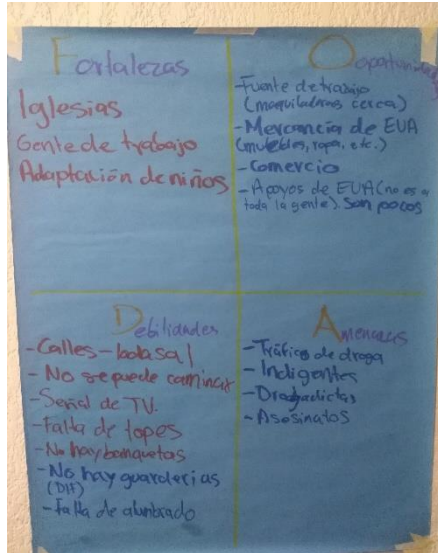 Fortalezas
Iglesias
Gente de trabajo
Adaptación de niños
Oportunidades
-Fuente de trabajo
(maquiladoras cerca)
-Mercancía de EUA
(muebles, ropa, etc.)
-Comercio
-Apoyos de EUA (no es a
toda la gente). Son pocos
Debilidades
-Calles -
- No se puede caminar
-Señal de TV.
-Falta de topes
-No hay banquetas
-No hay guarderias
(DIF)
-Falta de alumbrado
Amenazas
-Tráfico de droga
-Indigentes
-Drogadictas
-Asesinatos